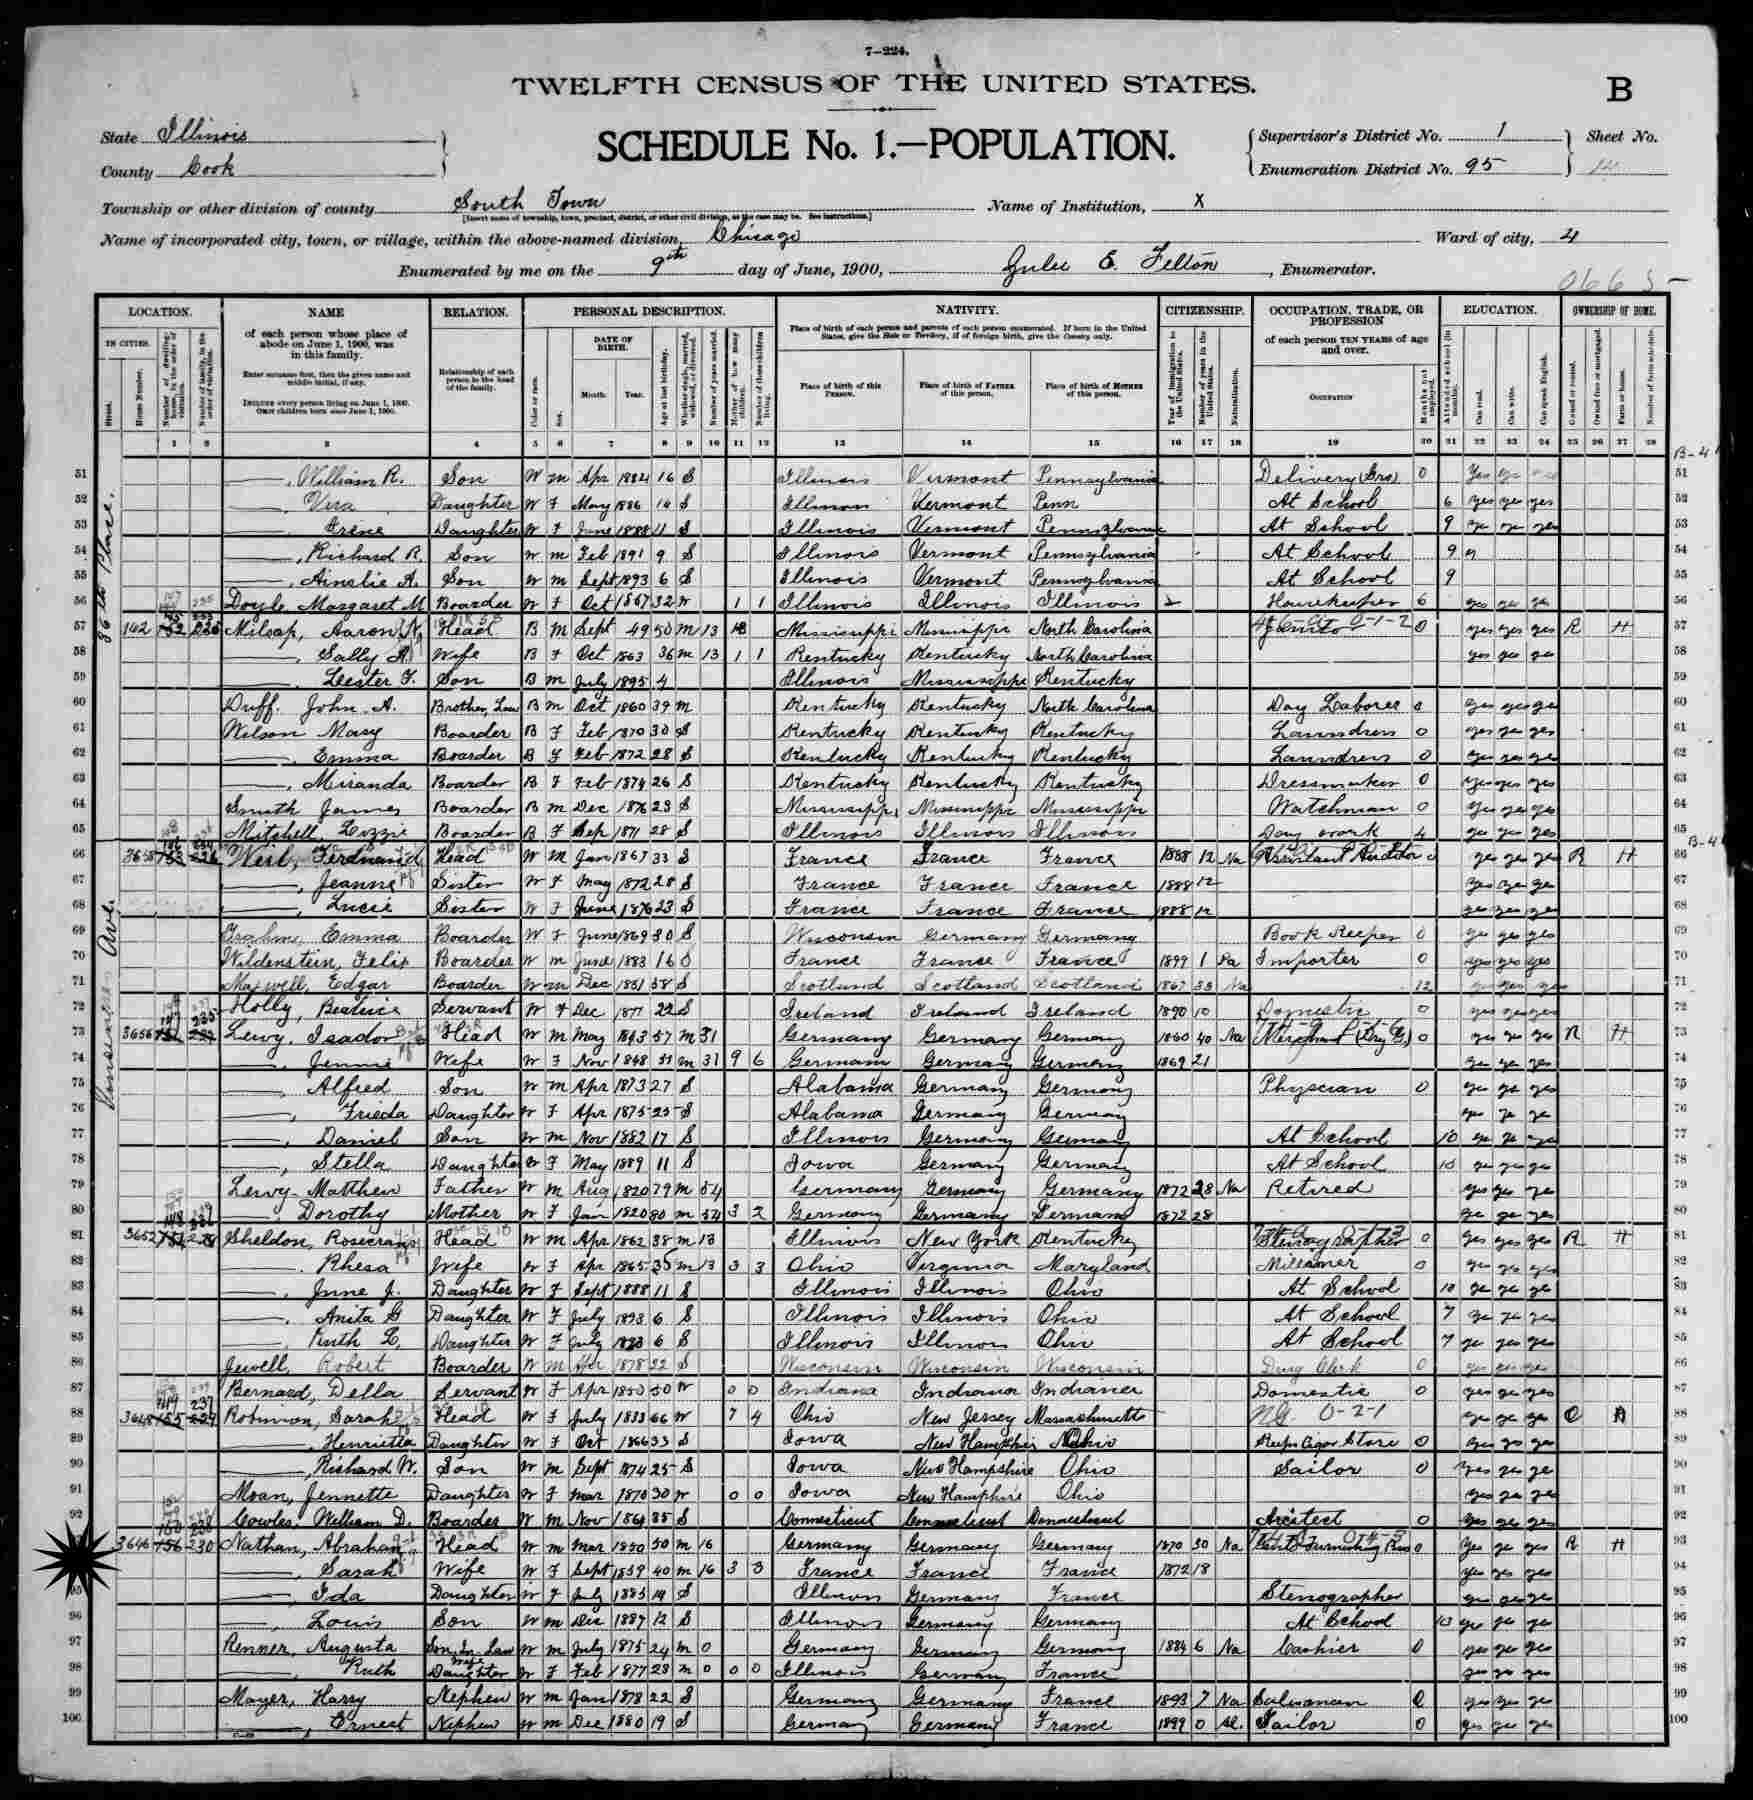 7—224.
TWELFTH CENSUS OF THE UNITED STATES.
B
State Illinois
County Cook
SCHEDULE No. 1.—POPULATION.
Supervisor's District No. 1
Enumeration District No. 95
Sheet No.
14
Township or other division of county South Town
[Insert name of township, town, precinct, district, or other civil division, as the case may be. See instructions.]
Name of Institution, X
Name of incorporated city, town, or village, within the above-named division, Chicago
Ward of city, 4
Enumerated by me on the 9th day of June, 1900, E. Felton, Enumerator.
LOCATION. NAME RELATION. PERSONAL DESCRIPTION. NATIVITY. CITIZENSHIP. OCCUPATION, TRADE, OR PROFESSION EDUCATION. OWNERSHIP OF HOME.
IN CITIES. of each person whose place of abode on June 1, 1900, was in this family.
Enter surname first, then the given name and middle initial, if any.
INCLUDE every person living on June 1, 1900. OMIT children born since June 1, 1900.
Relationship of each person to the head of the family.
DATE OF BIRTH. Month. Year.
Place of birth of each person and parents of each person enumerated. If born in the United States, give the State or Territory; if of foreign birth, give the Country only.
Place of birth of this PERSON. Place of birth of FATHER of this person. Place of birth of MOTHER of this person.
of each person TEN YEARS of age and over.
1 2 3 4 5 6 7 8 9 10 11 12 13 14 15 16 17 18 19 20 21 22 23 24 25 26 27 28
36th Place.
51 —, William R. Son W m Apr 1884 16 S Illinois Vermont Pennsylvania Delivery 0 51
52 —, Vera Daughter W F May 1886 14 S Illinois Vermont Penn At School 6 yes yes yes 52
53 —, Irene Daughter W F June 1888 11 S Illinois Vermont Pennsylvania At School 9 53
54 —, Richard R. Son W m Feb 1891 9 S Illinois Vermont Pennsylvania At School 9 54
55 —, Ainslie A. Son W m Sept 1893 6 S Illinois Vermont Pennsylvania At School 9 55
56 Doyle Margaret M Boarder W F Oct 1867 32 W 1 1 Illinois Illinois Illinois Housekeeper 6 yes yes yes 56
57 142 Milsap, Aaron Head B M Sept 49 50 M 13 Mississippi Mississippi North Carolina Janitor 0 yes yes yes R H 57
58 —, Sally A. Wife B F Oct 1863 36 m 13 1 1 Kentucky Kentucky North Carolina yes yes yes 58
59 —, Lester F. Son B m July 1895 4 Illinois Mississippi Kentucky 59
60 Duff. John A. Brother, Law B m Oct 1860 39 m Kentucky Kentucky North Carolina Day Laborer 0 yes yes yes 60
61 Wilson Mary Boarder B F Feb 1870 30 S Kentucky Kentucky Kentucky Laundress 0 yes yes yes 61
62 —, Emma Boarder B F Feb 1872 28 S Kentucky Kentucky Kentucky Laundress 0 yes yes yes 62
63 —, Miranda Boarder B F Feb 1874 26 S Kentucky Kentucky Kentucky Dressmaker 0 yes yes yes 63
64 Smith James Boarder B m Dec 1876 23 S Mississippi Mississippi Mississippi Watchman 0 yes yes yes 64
65 Mitchell, Lizzie Boarder B F Sep 1871 28 S Illinois Illinois Illinois Day work 4 yes yes yes 65
Ave.
66 3658 Weil, Ferdinand Head W m Jan 1867 33 S France France France 1888 12 Na Assistant Auditor 0 yes yes yes R H 66
67 —, Jeanne Sister W F May 1872 28 S France France France 1888 12 yes yes yes 67
68 —, Lucie Sister W F June 1876 23 S France France France 1888 12 yes yes yes 68
69 Emma Boarder W F June 1869 30 S Wisconsin Germany Germany Book Keeper 0 yes yes yes 69
70 Wildenstein, Felix Boarder W m June 1883 16 S France France France 1899 1 Pa Importer 0 yes yes yes 70
71 Maxwell, Edgar Boarder W m Dec 1861 38 S Scotland Scotland Scotland 1867 33 Na 12 yes yes yes 71
72 Holly, Beatrice Servant W F Dec 1877 22 S Ireland Ireland Ireland 1890 10 Domestic 0 yes yes yes 72
73 3656 Levy, Isador Head W m May 1843 57 m 31 Germany Germany Germany 1860 40 Na Merchant (Dry G.) 0 yes yes yes R H 73
74 —, Jennie Wife W F Nov 1848 51 m 31 9 6 Germany Germany Germany 1869 21 yes yes yes 74
75 —, Alfred Son W m Apr 1873 27 S Alabama Germany Germany Physician 0 yes yes yes 75
76 —, Frieda Daughter W F Apr 1875 25 S Alabama Germany Germany yes yes yes 76
77 —, Daniel Son W m Nov 1882 17 S Illinois Germany Germany At School 10 yes yes yes 77
78 —, Stella Daughter W F May 1889 11 S Iowa Germany Germany At School 10 yes yes yes 78
79 Levy Matthew Father W m Aug 1820 79 m 54 Germany Germany Germany 1872 28 Na Retired yes yes yes 79
80 —, Dorothy Mother W F Jan 1820 80 m 54 3 2 Germany Germany Germany 1872 28 yes yes yes 80
81 3652 Sheldon, Rosecrans Head W m Apr 1862 38 m 13 Illinois New York Kentucky Stenographer 0 yes yes yes R H 81
82 —, Rhesa Wife W F Apr 1865 35 m 13 3 3 Ohio Virginia Maryland Milliner 0 yes yes yes 82
83 —, June J. Daughter W F Sept 1888 11 S Illinois Illinois Ohio At School 10 yes yes yes 83
84 —, Anita G Daughter W F July 1893 6 S Illinois Illinois Ohio At School 7 yes yes yes 84
85 —, Ruth L, Daughter W F July 6 S Illinois Illinois Ohio At School 7 yes yes yes 85
86 Jewell, Robert Boarder W m Apr 1878 22 S Wisconsin Wisconsin Wisconsin Drug Clerk 0 yes yes yes 86
87 Bernard, Della Servant W F Apr 1850 50 W 0 0 Indiana Indiana Indiana Domestic 0 yes yes yes 87
88 3648 Robinson, Sarah Head W F July 1833 66 W 7 4 Ohio New Jersey Massachusetts yes yes yes O H 88
89 —, Henrietta Daughter W F Oct 1866 33 S Iowa New Hampshire Ohio Keeps Cigar Store 0 yes yes yes 89
90 —, Richard W. Son W m Sept 1874 25 S Iowa New Hampshire Ohio Sailor 0 yes yes yes 90
91 Moan, Jennette Daughter W F Mar 1870 30 W 0 0 Iowa New Hampshire Ohio yes yes yes 91
92 Cowles, William D. Boarder W m Nov 1864 35 S Connecticut Connecticut Connecticut Arcitect 0 yes yes yes 92
3646 Nathan, Abraham Head W m Mar 1850 50 m 16 Germany Germany Germany 1870 30 Na Gents Furnishing 0 yes yes yes R H 93
—, Sarah Wife W F Sept 1859 40 m 16 3 3 France France France 1872 18 yes yes yes 94
95 —, Ida Daughter W F July 1885 14 S Illinois Germany France Stenographer yes yes yes 95
96 —, Louis Son W m Dec 1887 12 S Illinois Germany Germany At School 10 yes yes yes 96
97 Renner, Augusta Son In Law W m July 1875 24 m 0 Germany Germany Germany 1884 6 Na Cashier 0 yes yes yes 97
98 —, Ruth Daughter W F Feb 1877 23 m 0 0 0 Illinois Germany France yes yes yes 98
99 Mayer, Harry Nephew W m Jan 1878 22 S Germany Germany France 1893 7 Na Salesman 0 yes yes yes 99
100 —, Ernest Nephew W m Dec 1880 19 S Germany Germany France 1899 0 Al. Tailor 0 yes yes yes 100